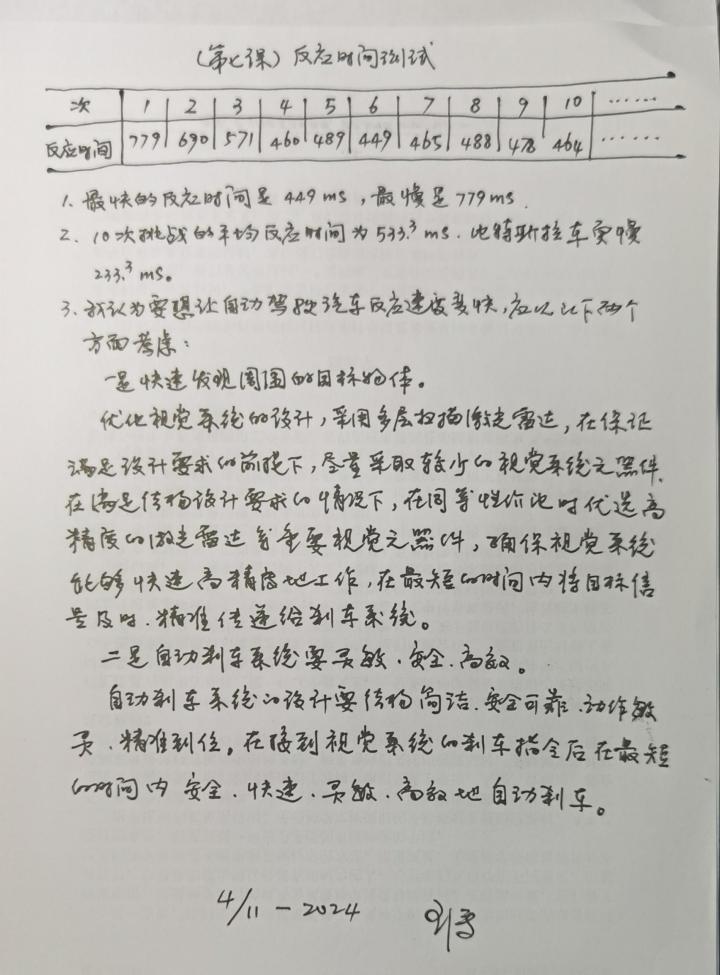 (第七课)反应时间测试
次 1 2 3 4 5 6 7 8 9 10 ……
反应时间 779 690 571 460 489 449 465 488 478 464 ……
1、最快的反应时间是 449 ms,最慢是 779 ms.
2、10次挑战的平均反应时间为 533.3 ms.比特斯拉车更慢
233.3 ms。
3、我认为要想让自动驾驶汽车反应速度变快,应从以下两个
方面考虑:
一是快速发现周围的目标物体。
优化视觉系统的设计,采用多层扫描激光雷达,在保证
满足设计要求的前提下,尽量采取较少的视觉系统元器件,
在满足结构设计要求的情况下,在同等性价比时优选高
精度的激光雷达等重要视觉元器件,确保视觉系统
能够快速高精度地工作,在最短的时间内将目标信
号及时、精准传递给刹车系统。
二是自动刹车系统要灵敏、安全、高效。
自动刹车系统的设计要结构简洁、安全可靠、动作敏
灵、精准到位。在接到视觉系统的刹车指令后在最短
的时间内安全、快速、灵敏、高效地自动刹车。
4/11-2024